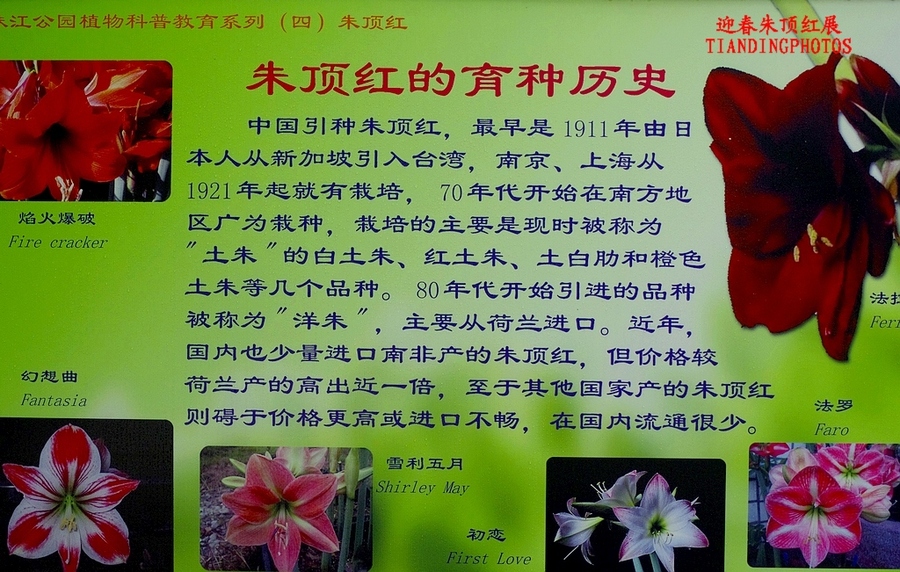 珠江公园植物科普教育系列（四）朱顶红
迎春朱顶红展
TIANDINGPHOTOS
朱顶红的育种历史
中国引种朱顶红，最早是1911年由日
本人从新加坡引入台湾，南京、上海从
1921年起就有栽培，70年代开始在南方地
区广为栽种，栽培的主要是现时被称为
"土朱"的白土朱、红土朱、土白肋和橙色
土朱等几个品种。80年代开始引进的品种
被称为"洋朱"，主要从荷兰进口。近年，
国内也少量进口南非产的朱顶红，但价格较
荷兰产的高出近一倍，至于其他国家产的朱顶红
则碍于价格更高或进口不畅，在国内流通很少。
焰火爆破
Fire cracker
法拉
Ferr
幻想曲
Fantasia
法罗
Faro
雪利五月
Shirley May
初恋
First Love